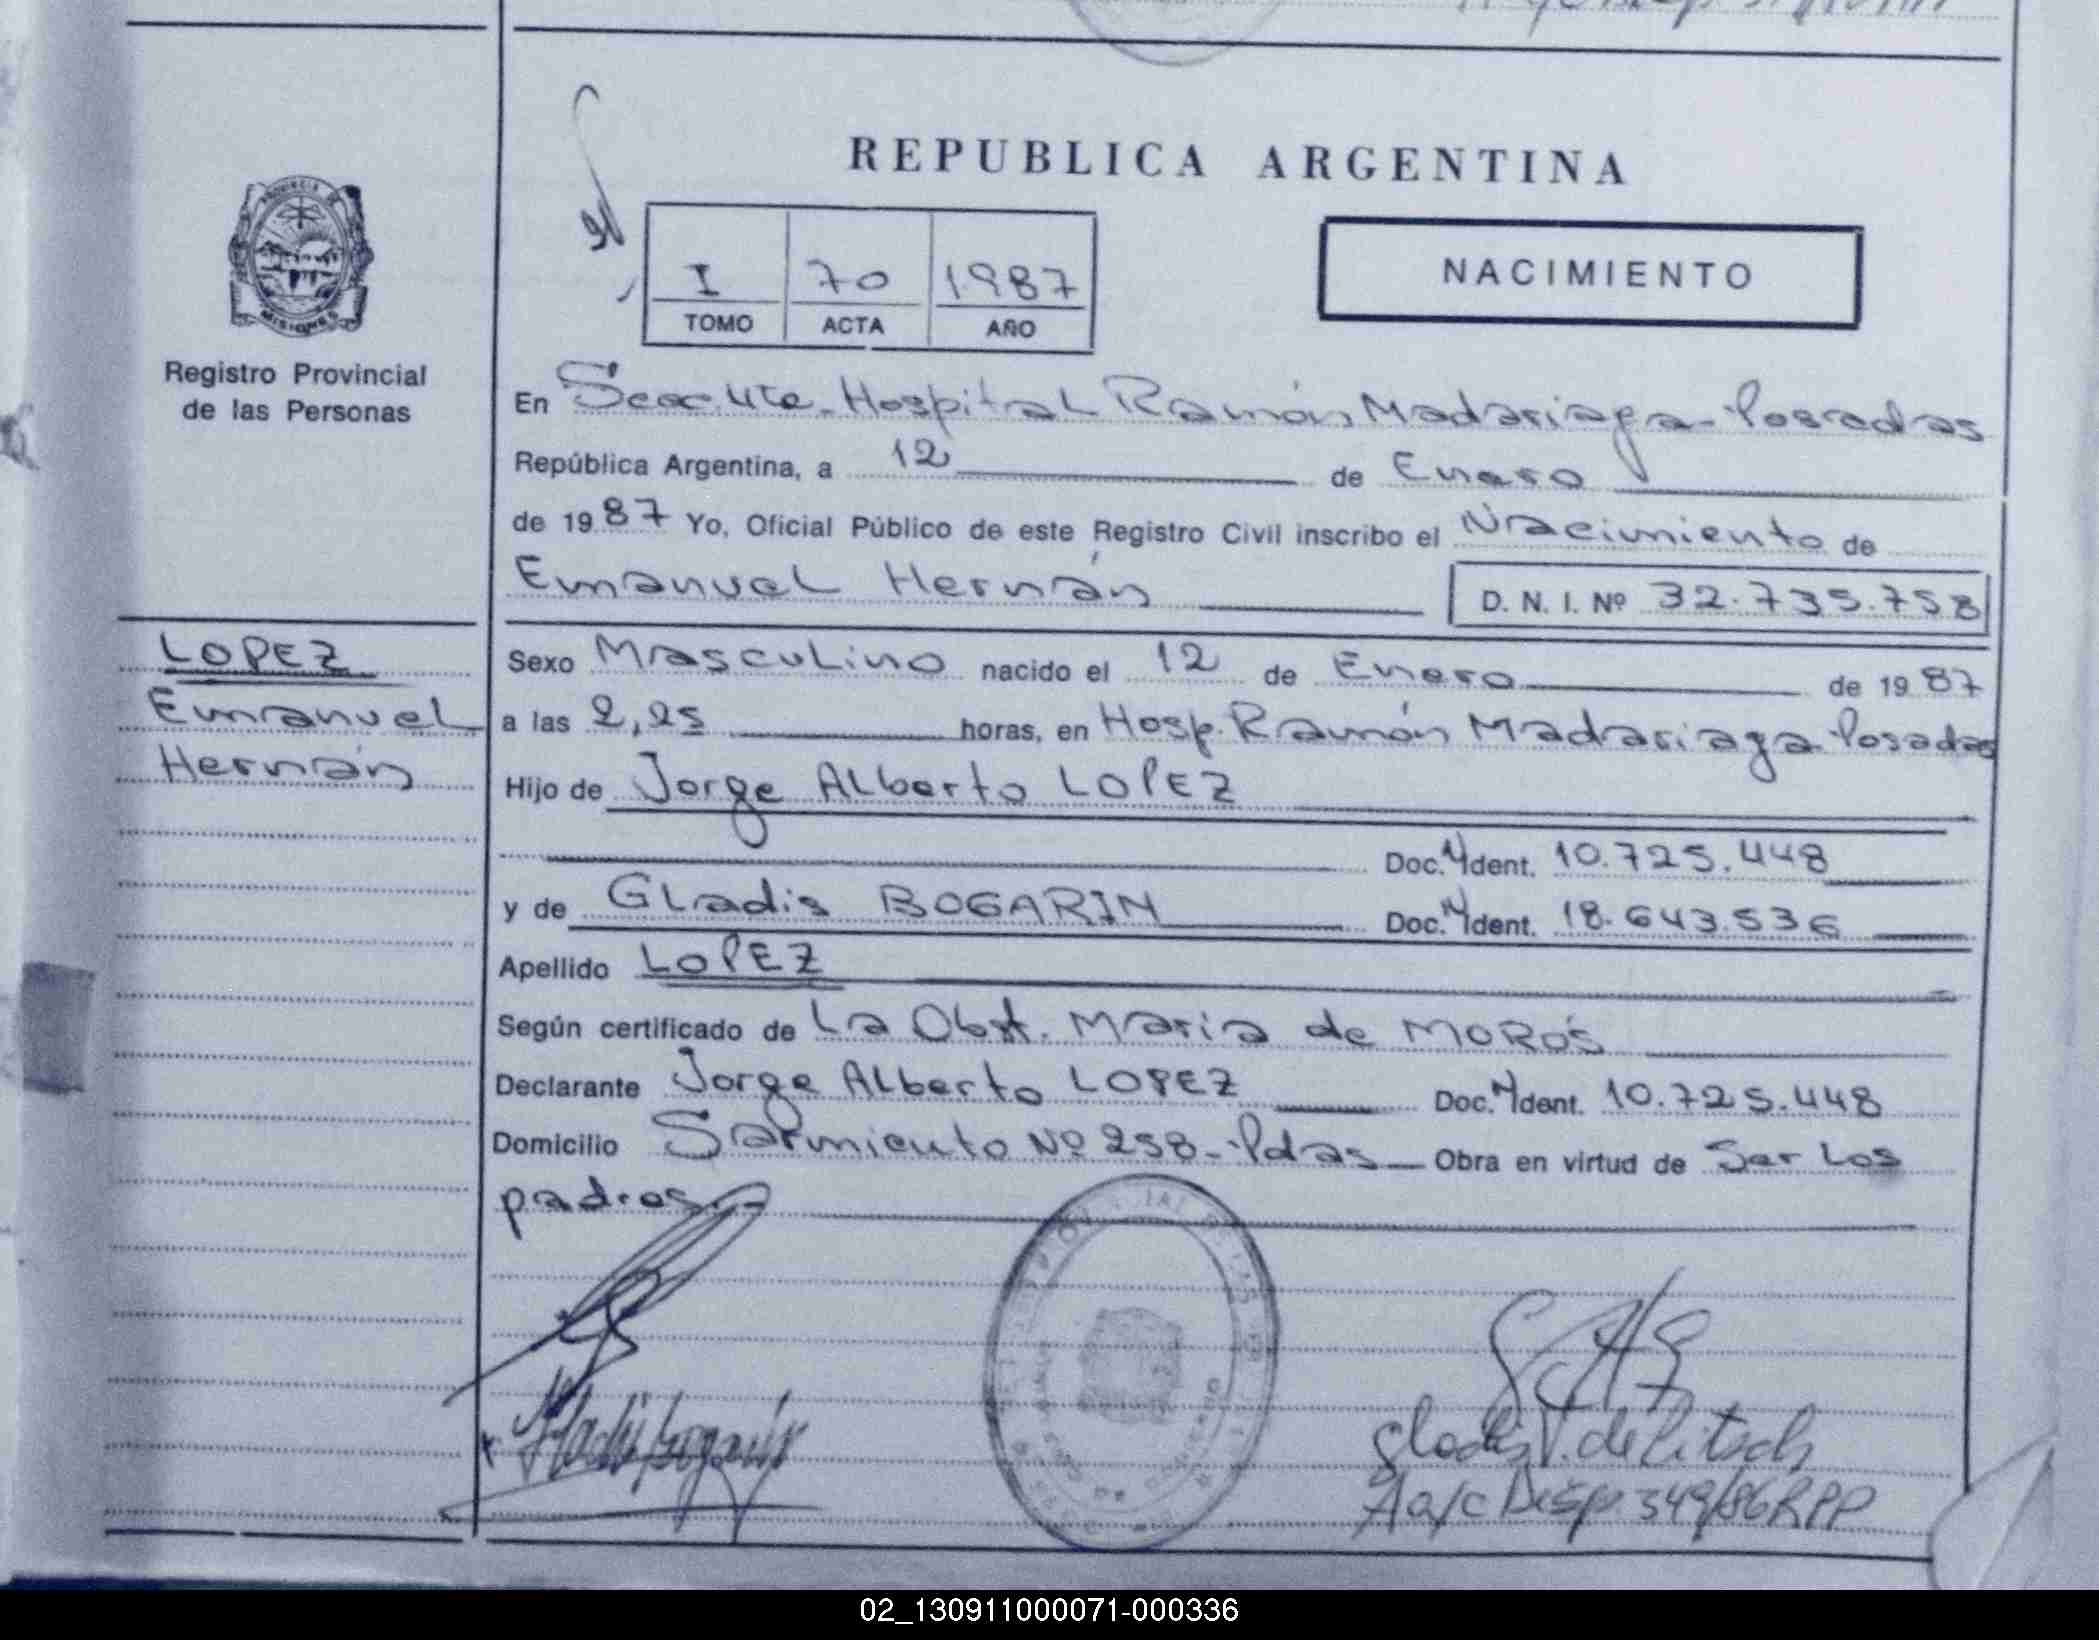 REPUBLICA ARGENTINA
PROVINCIA DE
MISIONES
Registro Provincial
de las Personas
I 70 1987
TOMO ACTA AÑO
NACIMIENTO
En Hospital Ramón Madariaga - Posadas
República Argentina, a 12 de Enero
de 1987 Yo, Oficial Público de este Registro Civil inscribo el Nacimiento de
Emanuel Hernán D. N. I. Nº 32.735.758
LOPEZ
Emanuel
Hernán
Sexo Masculino nacido el 12 de Enero de 1987
a las 2,25 horas, en Hosp. Ramón Madariaga Posadas
Hijo de Jorge Alberto LOPEZ
Doc. Ident. 10.725.448
y de Gladis BOGARIN Doc. Ident. 18.643.536
Apellido LOPEZ
Según certificado de La Obst. Maria de MOROS
Declarante Jorge Alberto LOPEZ Doc. Ident. 10.725.448
Domicilio Sarmiento Nº 258 - Pdas Obra en virtud de Ser Los
padres
Gladis Bogarin
Gladis V. de
A a/c Disp 349/86 RPP
02_130911000071-000336